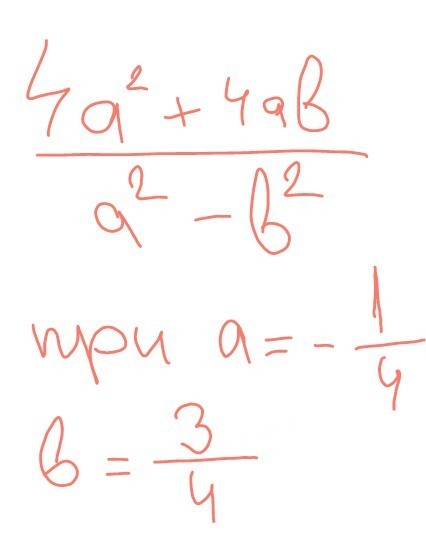 4a² + 4ab
a² − b²
при a = - 1/4
b = 3/4